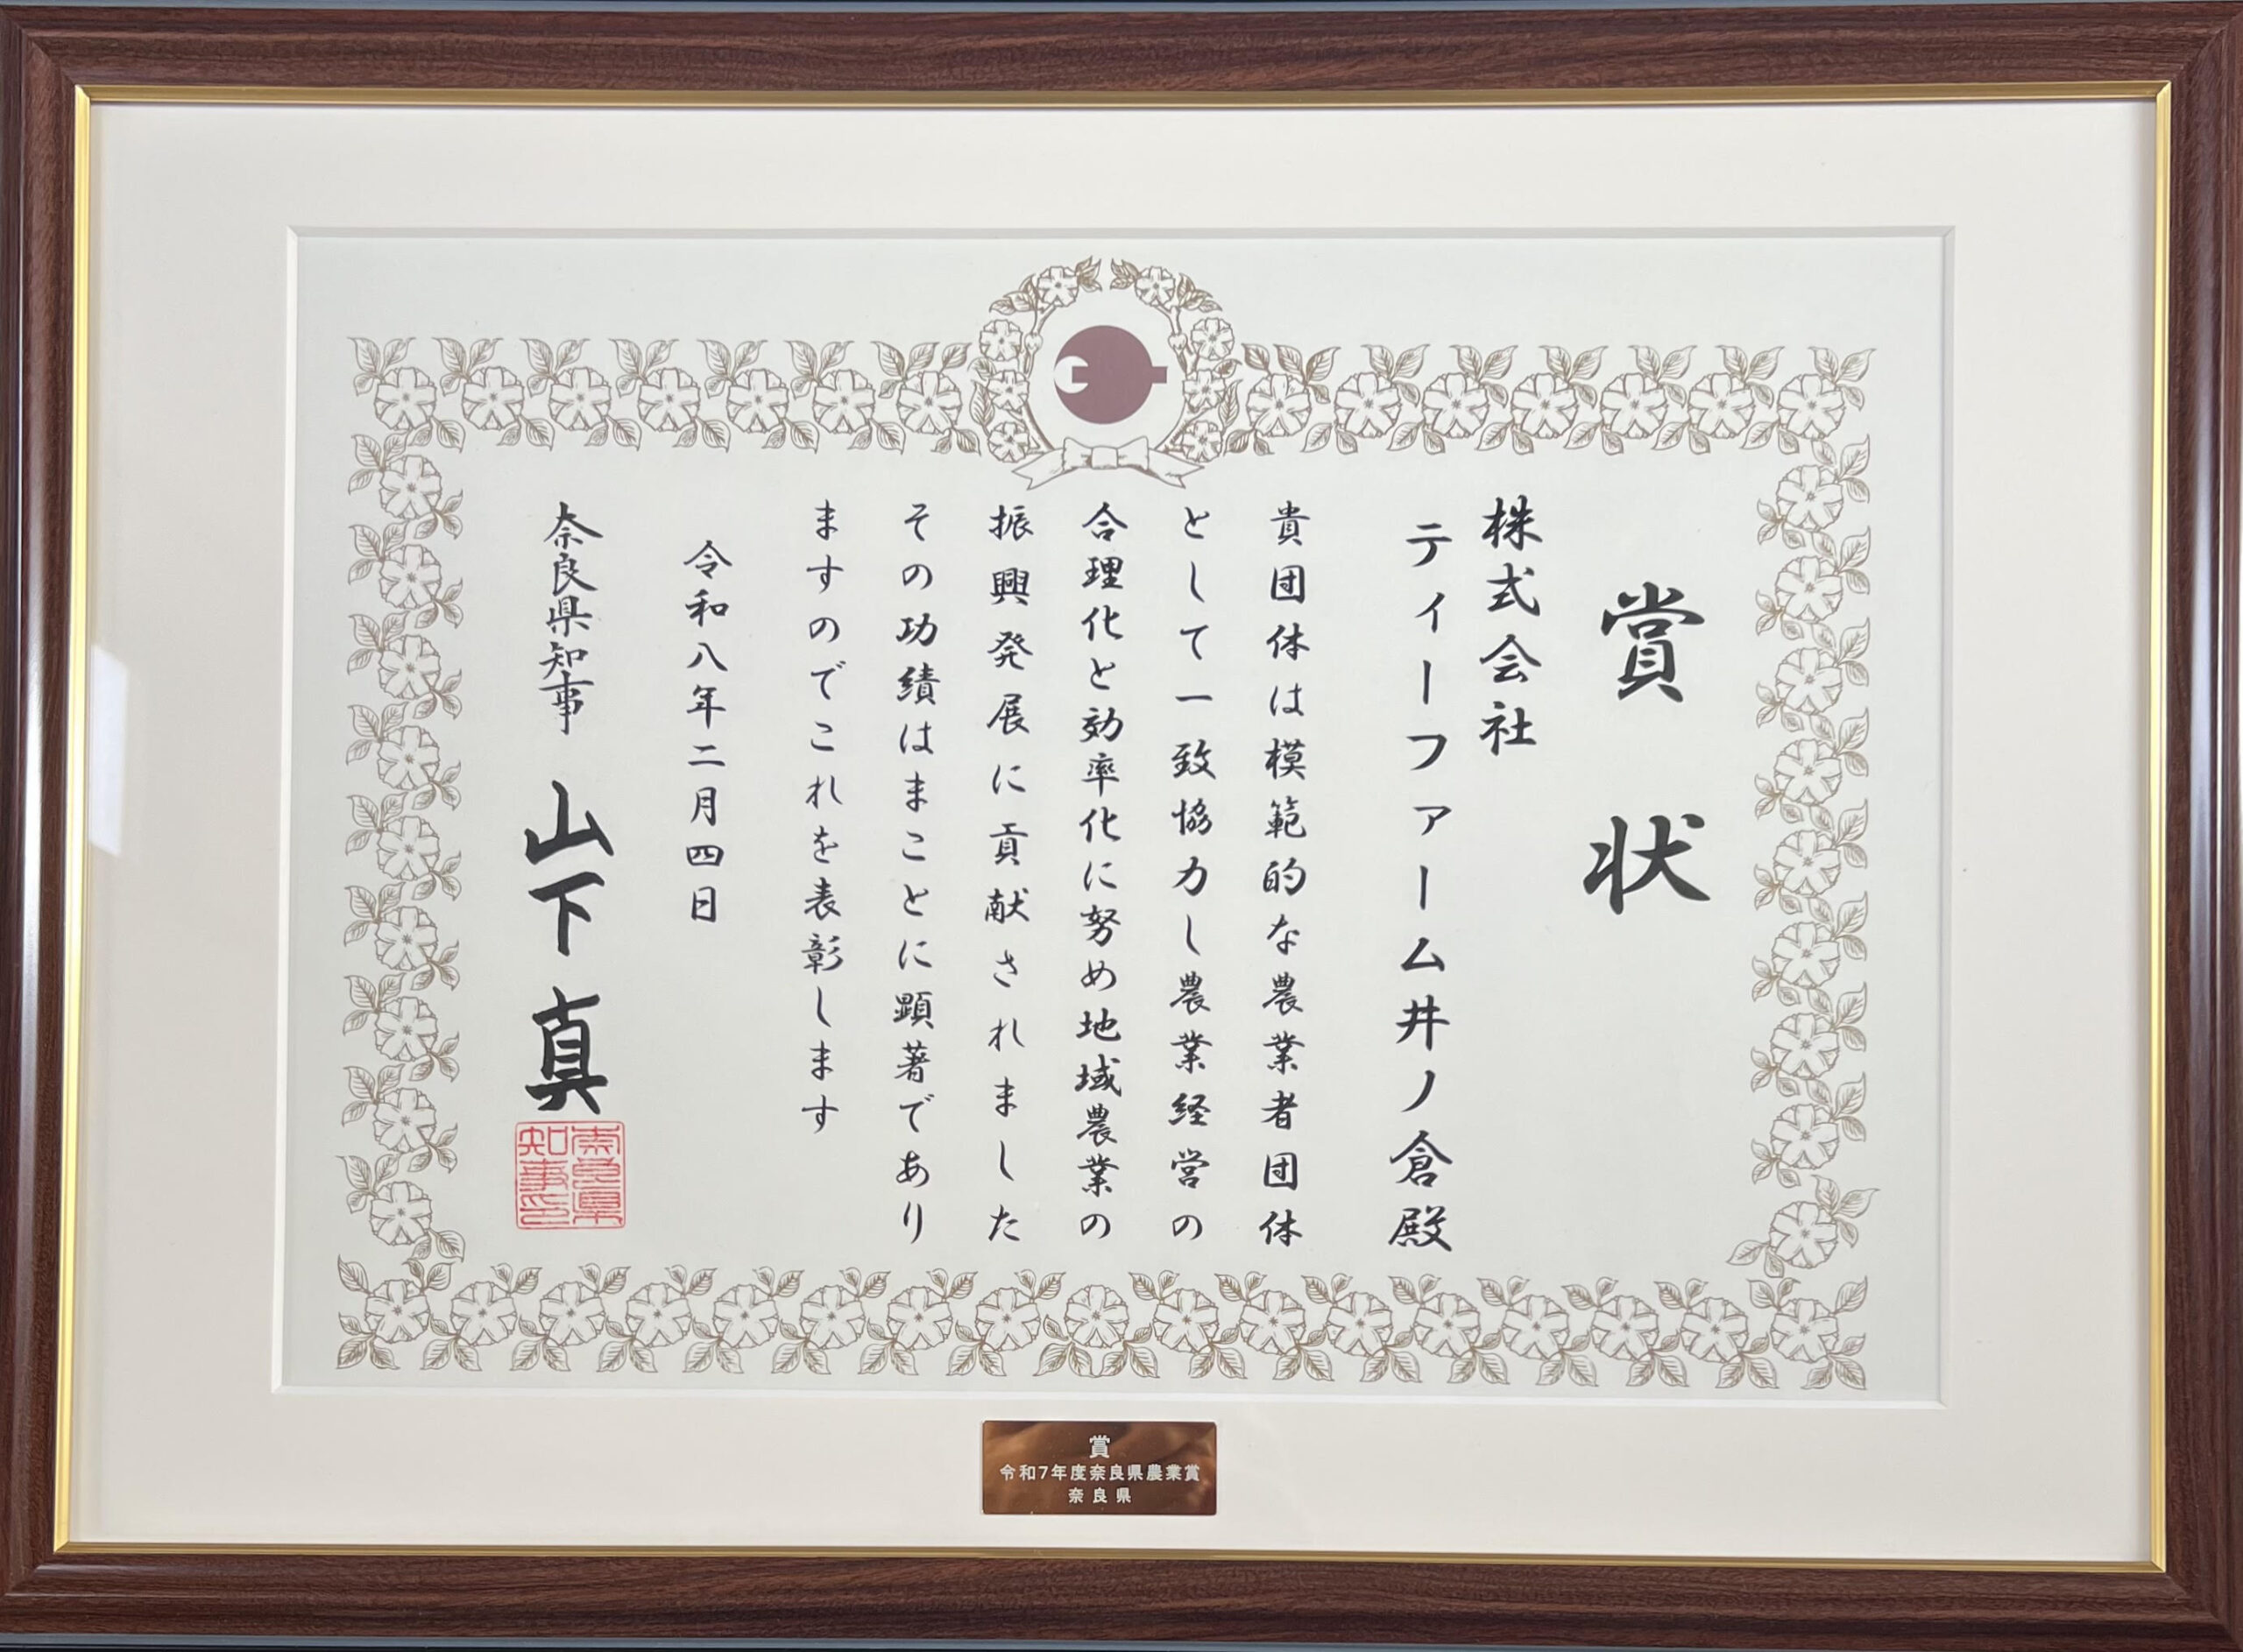 賞状
株式会社
ティーファーム井ノ倉殿
貴団体は模範的な農業者団体
として一致協力し農業経営の
合理化と効率化に努め地域農業の
振興発展に貢献されました
その功績はまことに顕著であり
ますのでこれを表彰します
令和八年二月四日
奈良県知事 山下真
奈良県
知事印
賞
令和7年度奈良県農業賞
奈良県